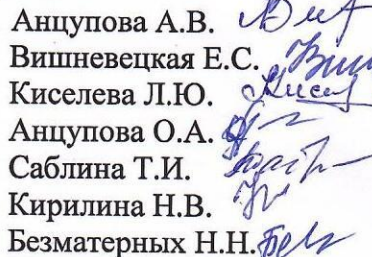 Анцупова А.В.
Вишневецкая Е.С.
Киселева Л.Ю.
Анцупова О.А.
Саблина Т.И.
Кирилина Н.В.
Безматерных Н.Н.